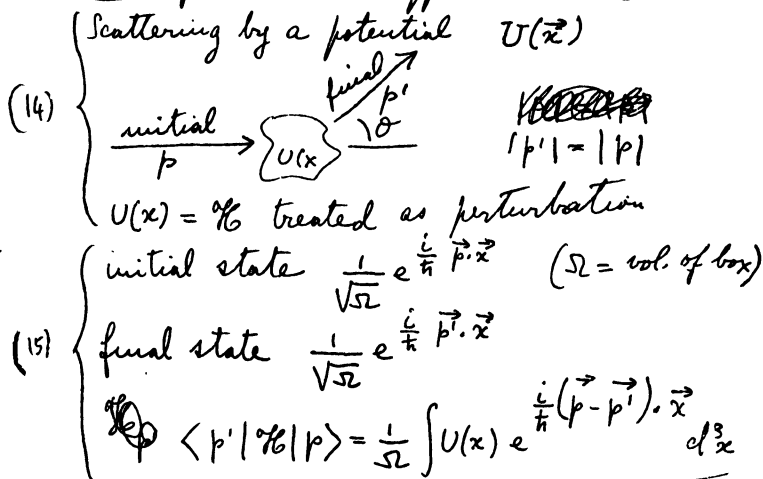 Scattering by a potential U(x⃗)
(14)
final
p'
θ
initial
p
U(x
|p'| = |p|
U(x) = ℋ treated as perturbation
initial state 1/√Ω e^{i/ħ p⃗·x⃗} (Ω = vol. of box)
(15)
final state 1/√Ω e^{i/ħ p⃗'·x⃗}
⟨p'|ℋ|p⟩ = 1/Ω ∫U(x) e^{i/ħ (p⃗-p⃗')·x⃗} d³x